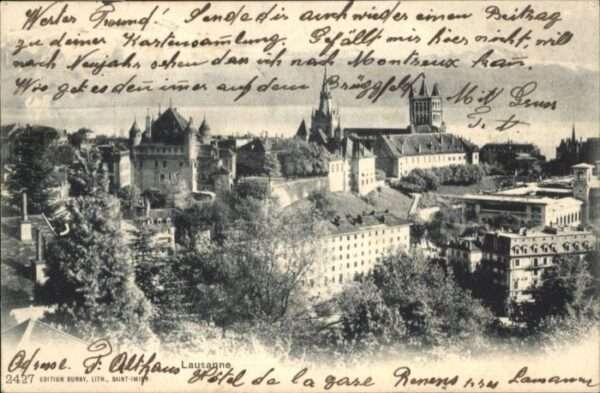 Werter Freund! Sende dir auch wieder einen Beitrag
zu deiner Kartensamlung. Gefällt mir hier nicht, will
nach Neujahr sehen das ich nach Montreux kan.
Wie get es den imer auf dem Brüggfeld Mit Gruss
Lausanne
Adresse. F. Althaus Hôtel de la gare Renens près Lausanne
2427 EDITION BURGY, LITH., SAINT-IMIER